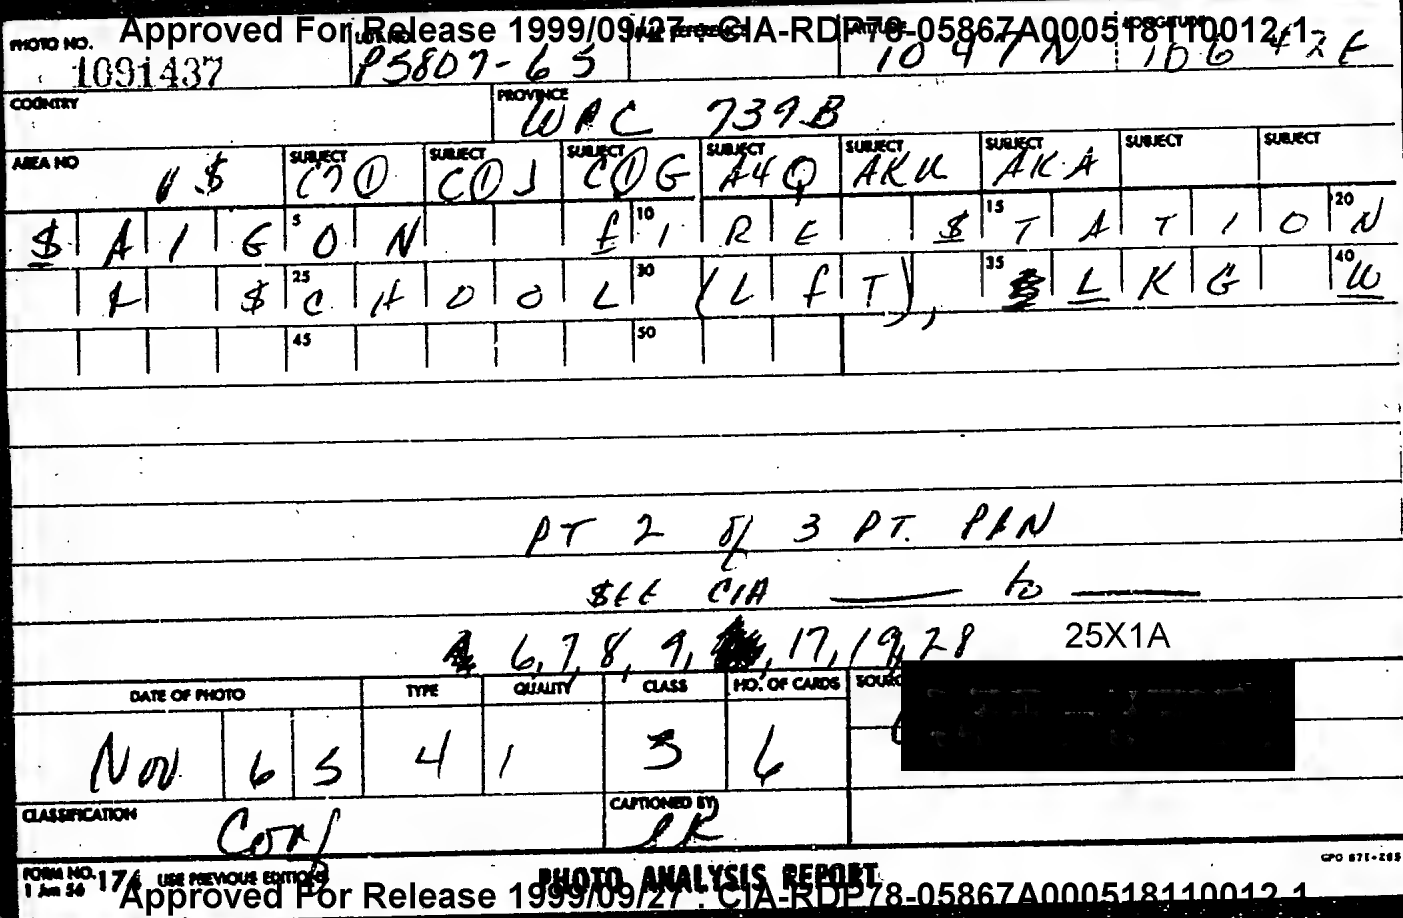 Approved For Release 1999/09/27 : CIA-RDP78-05867A000518110012-1
PHOTO NO. 1091437 P5807-65 LATITUDE 1047N LONGITUDE 10642E
COUNTRY PROVINCE WAC 739B
AREA NO V$ SUBJECT C70 SUBJECT C0J SUBJECT C0G SUBJECT A4Q SUBJECT AKU SUBJECT AKA SUBJECT SUBJECT
5 10 15 20
$AIGON fIRE $TATION
25 30 35 40
& $CHOOL (LfT), LKG W
45 50
PT 2 of 3 PT. PAN
$EE CIA ____ to ____
6, 7, 8, 9, 17, 19, 28 25X1A
DATE OF PHOTO TYPE QUALITY CLASS NO. OF CARDS
Nov 65 4 1 3 6
CLASSIFICATION Conf CAPTIONED BY
FORM NO. 1 Jan 56 174 USE PREVIOUS EDITIONS PHOTO ANALYSIS REPORT
Approved For Release 1999/09/27 : CIA-RDP78-05867A000518110012-1